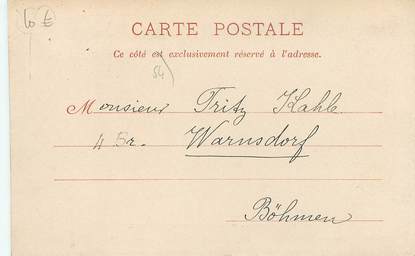 10 €
CARTE POSTALE
Ce côté est exclusivement réservé à l'adresse.
54
Monsieur Fritz Kahle
Warnsdorf
Böhmen